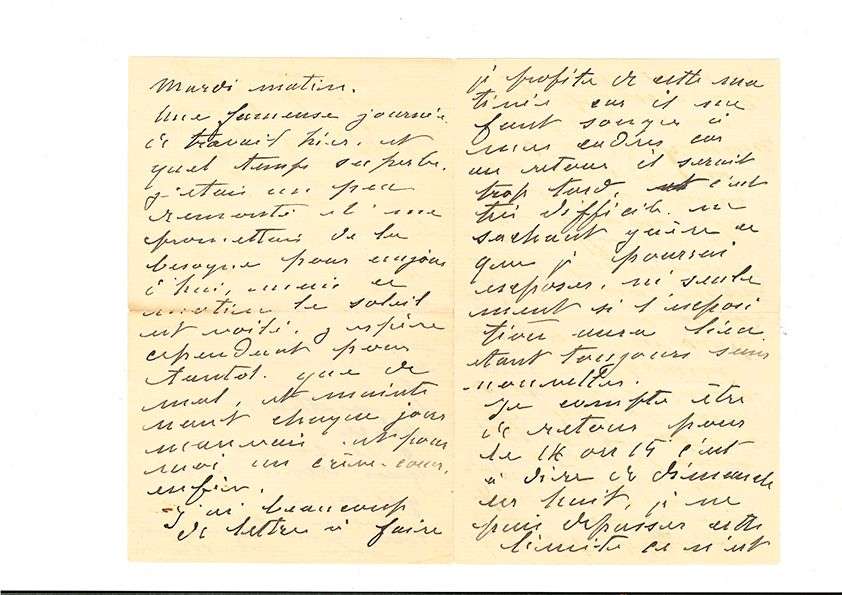 Mardi matin.
Une fameuse journée
de travail hier, et
quel temps superbe.
j'étais un peu
remonté et me
promettais de la
besogne pour aujour
d'hui, mais ce
matin le soleil
est voilé. j'espère
cependant pour
tantot. que de
mal, et mainte
nant chaque jour
mauvais est pour
moi un crève-cœur,
enfin.
J'ai beaucoup
de lettre à faire
je profite de cette ma
tinée car il me
faut songer à
mes cadres car
au retour il serait
trop tard, c'est
très difficile. ne
sachant guère ce
que je pourrai
exposer, ni seule
ment si l'exposi
tion aura lieu
étant toujours sans
nouvelles.
Je compte être
de retour pour
le 14 ou 15 c'est
à dire de dimanche
en huit, je ne
puis dépasser cette
limite ce n'est